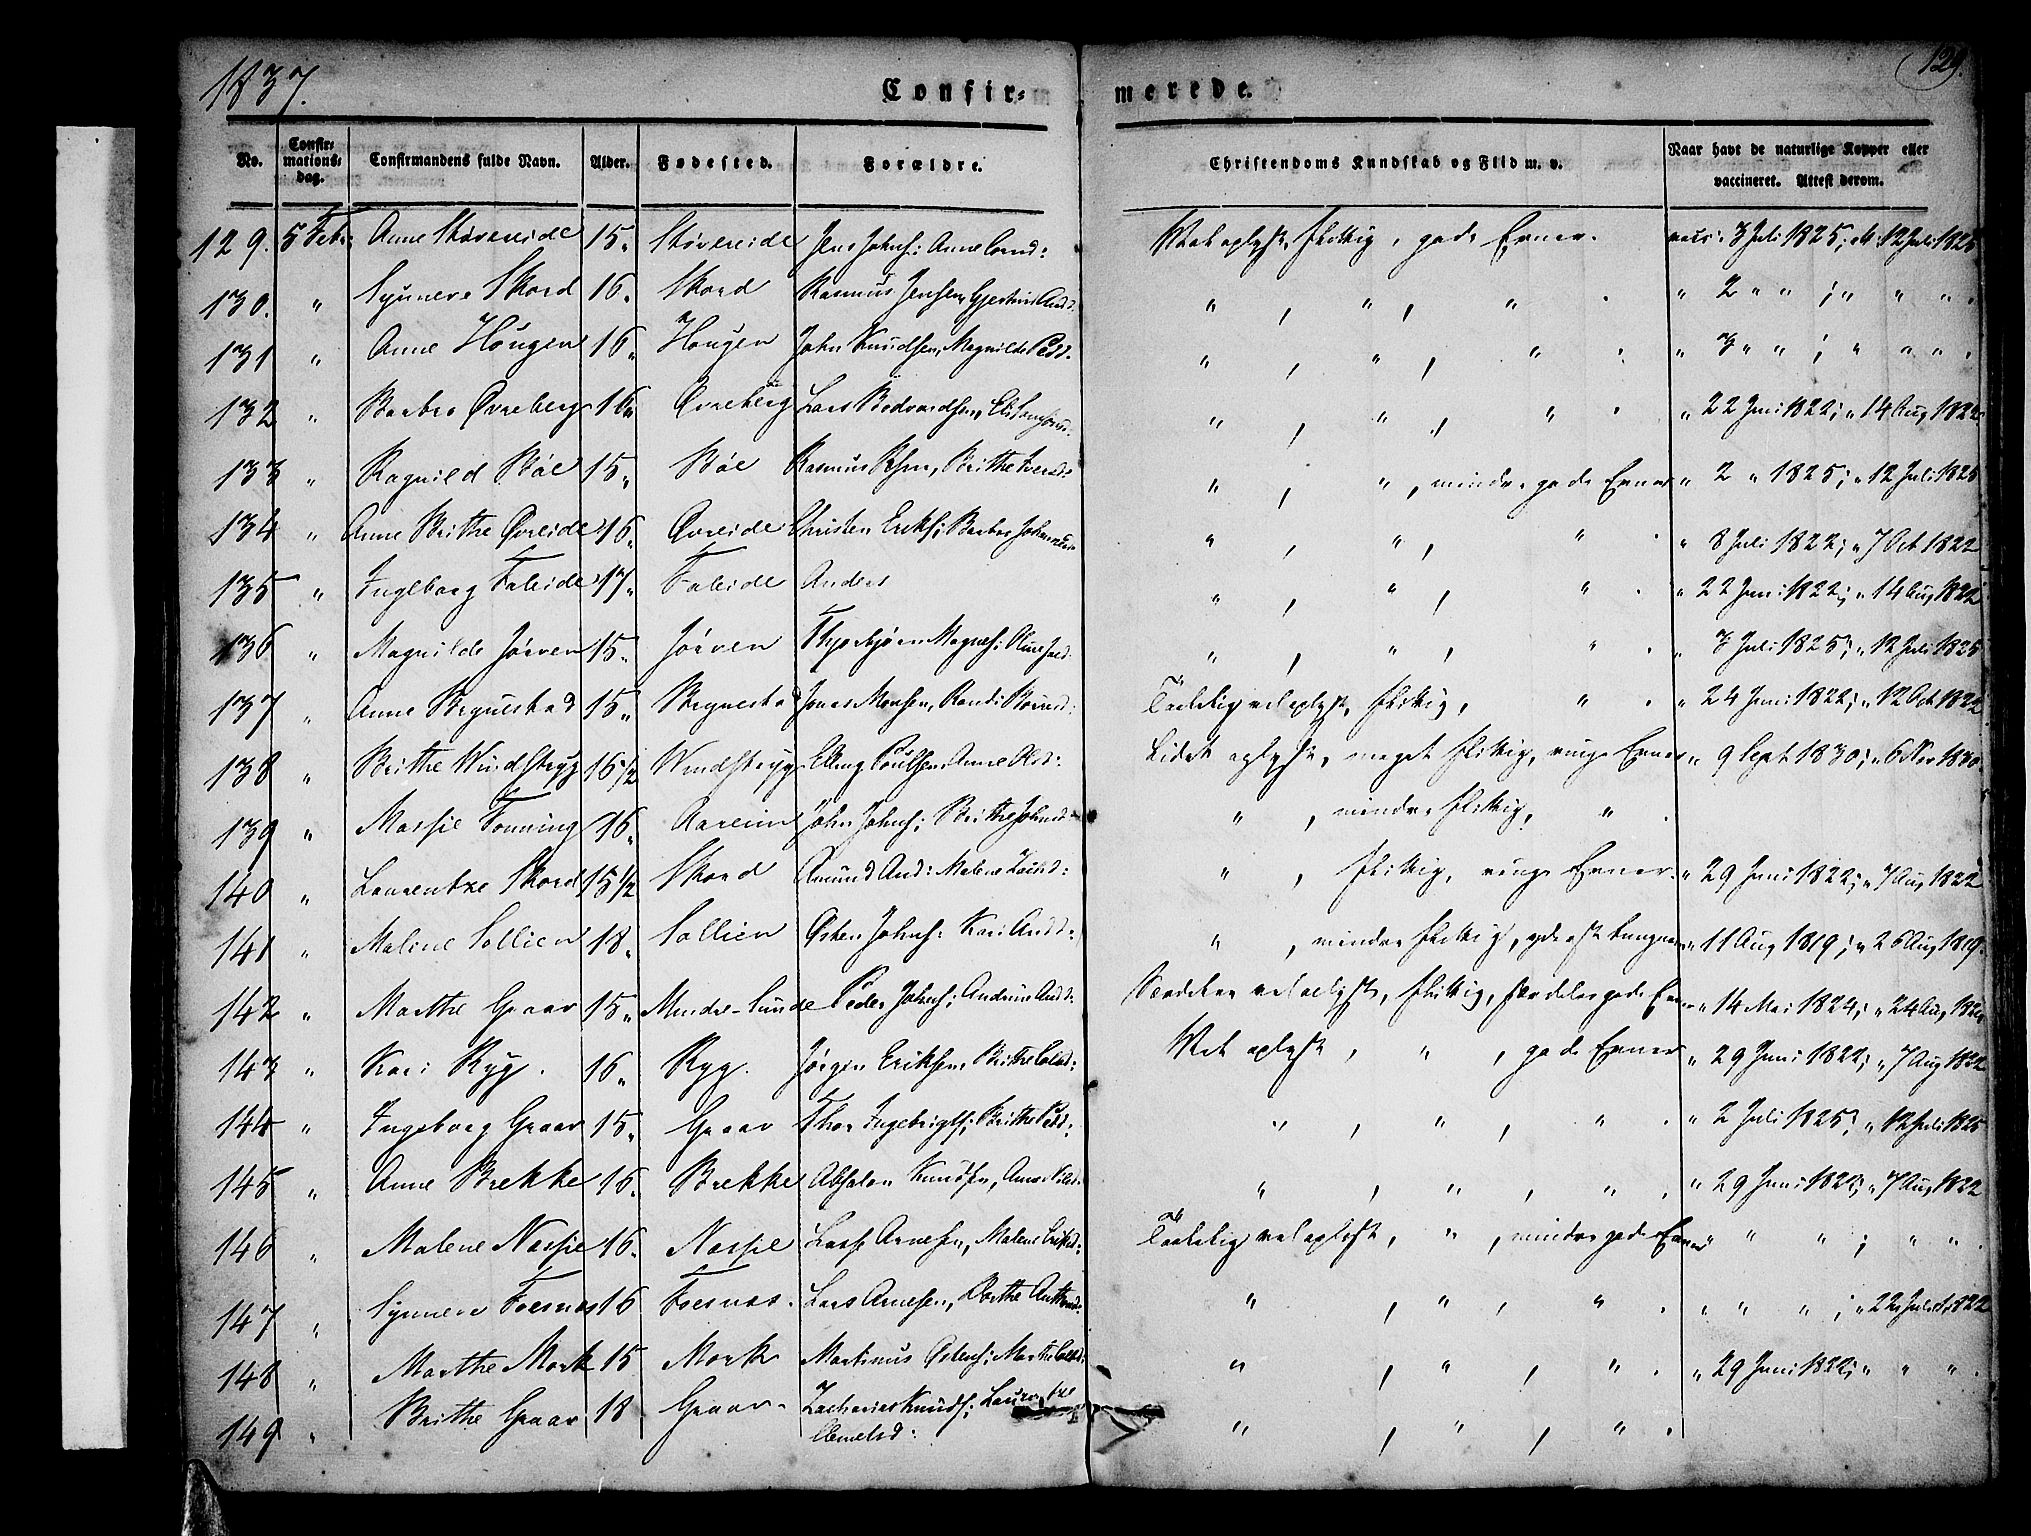 1837.
129.
Confirmerede.
No. Confirmations-dag. Confirmandens fulde Navn. Alder. Fødested. Forældre. Christendoms Kundskab og Flid m. v. Naar havt de naturlige Kopper eller vaccineret. Attest derom.
129. 5 Febr: Anne Støvereide 15 " Støvereide Jens Johns: Anne vel oplyst, flittig, gode Evner. vacc: 3 Juli 1825; att. 12 Juli 1825
130. " Synneve Skord 16 " Skord Rasmus Jensen, Gjertrud Andd: " , " , " . " 2 " " ; " " " .
131 " Anne Hougen 16 " Hougen John Knudsen, Magnilde Pedd: " , " , " . " 3 " " ; " " " .
132 " Barbro Øvreberg 16 " Øvreberg Lars Bodvardsen, " , " , " . " 22 Juni 1822; " 14 Aug 1822
133 " Ragnild Bøe 15 " Bøe Rasmus Brithe Iversd: " , " , mindre gode Evner " 2 " 1825; " 12 Juli 1825
134 " Anne Brithe Øvreide 16 " Øvreide Christen Eriks: Barbro " , " , " . " 8 Juli 1822; " 7 Oct 1822
135 " Ingeborg Faleide 17 " Faleide Anders " , " , " . " 22 Juni 1822; " 14 Aug 1822
136 " Magnilde Jørven 15 " Jørven Magnes: " , " , " . " 3 Juli 1825; " 12 Juli 1825
137 " Anne Bergnestad 15 " Bergnestad Jonas Monsen, Randi Taalelig vel oplyst, flittig, " . " 24 Juni 1822; " 12 Oct 1822
138 " Brithe Windstryg 16 1/2 Windstryg Elling Poulsen Anne Olsd: Lidet oplyst, meget flittig, ringe Evner " 9 Sept 1830; " 6 Nov 1830
139 " Massie Fonning 16 " Aareim John Johns: Brithe Johnsd: " , mindre flittig, " .
140 " Laurentze Skord 15 1/2 Skord Amund And: Malene " , flittig, ringe Evner. " 29 Juni 1822; " 7 Aug 1822
141 " Malene Sollien 18 " Sollien Østen Johns: Kari Andd: " , mindre flittig, " 11 Aug 1819; " 26 Aug 1819.
142 " Marthe Graav 15 " Mindre-Sunde Peder Johns: Andrine Andd: Særdeles vel oplyst, flittig, særdeles gode Evner " 14 Mai 1824; " 24 Aug 1824
143 " Kari Ryg. 16 " Ryg. Jørgen Eriksen Brithe Vel oplyst, " , gode Evner " 29 Juni 1822; " 7 Aug 1822
144 " Ingeborg Graav 15 " Graav Thor Ingebrigts: Brithe Pedd: " , " , " . " 2 Juli 1825; " 12 Juli 1825
145 " Anne Brekke 16 " Brekke Absalon Knudsen, Anne Nilsd: " , " , " . " 29 Juni 1822; " 7 Aug 1822
146 " Malene Nossie 16 " Nossie Lasse Arnesen, Malene Eriksd: Taalelig vel oplyst, " , mindre gode Evner " " " ; " " .
147 " Synneve Fresnes 16 Fresnes. Lars Arnesen, Dorthe " , " , " . " " " ; " 22 Juli 1822
148 " Marthe Mork 15 Mork Martinus Østens: Marthe " , " , " . " 29 Juni 1822; " " " .
149 " Brithe Graav 18 Graav Zacharias Knuds; Laurentze " , " , " .
Clemetsd: